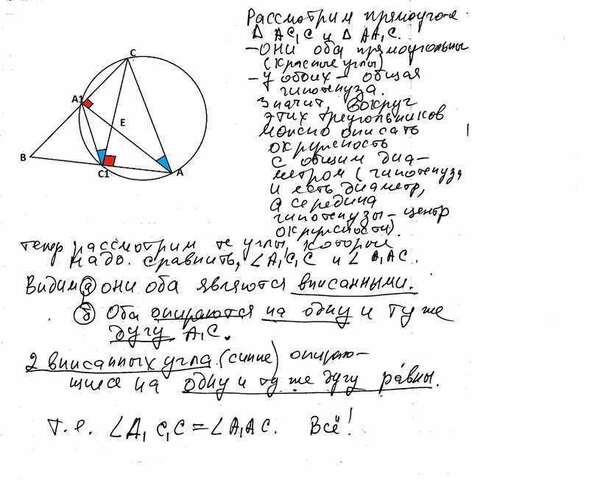 Рассмотрим прямоуголь
Δ AC₁C и Δ AA₁C.
- они оба прямоугольны
(красные углы)
- у обоих - общая
гипотенуза.
Значит, вокруг
этих треугольников
можно описать
окружность
с общим диа-
метром (гипотенуза
и есть диаметр,
а середина
гипотенузы - центр
окружности).
C
A1
E
B
C1
A
тепер рассмотрим те углы, которые
надо сравнить, ∠A₁C₁C и ∠A₁AC.
Видим а) они оба являются вписанными.
б) Оба опираются на одну и ту же
дугу A₁C.
2 вписанных угла (синие) опираю-
щиеся на одну и ту же дугу равны.
Т.е. ∠A₁C₁C = ∠A₁AC. Всё!